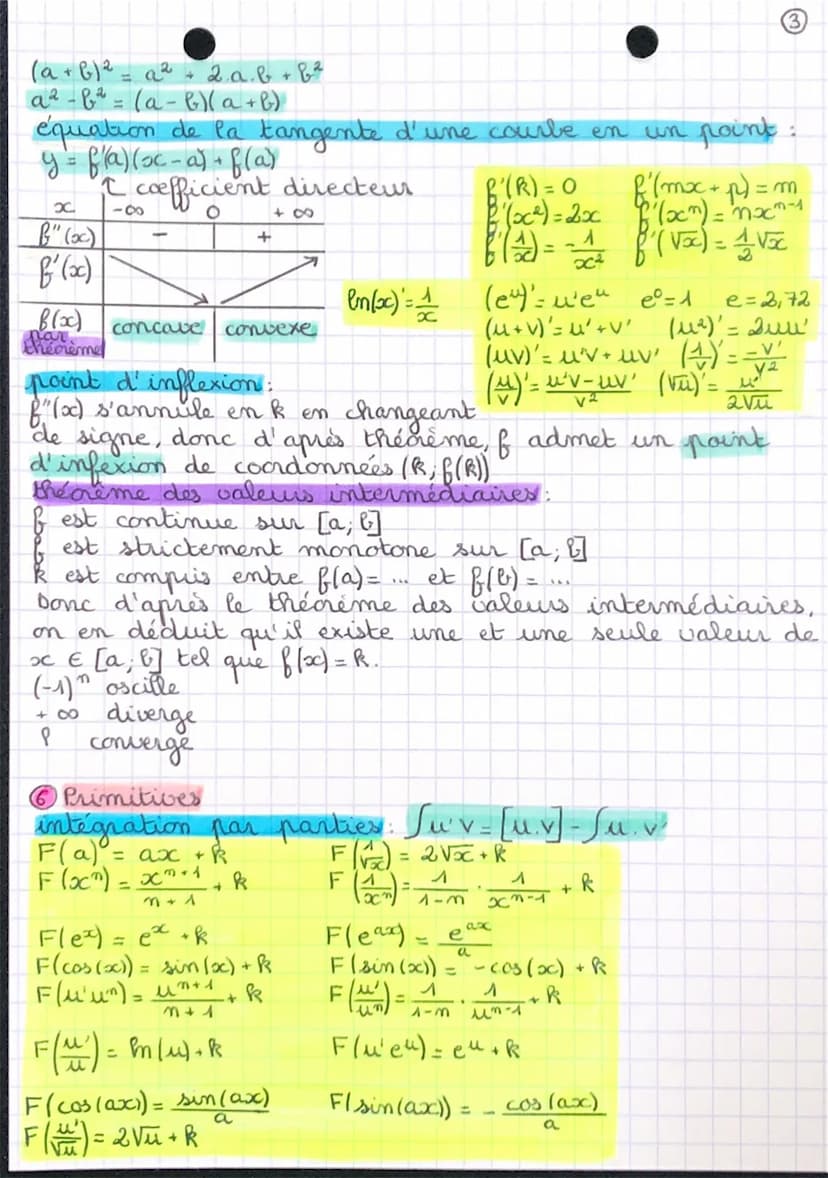 3
(a + b)² = a² + 2.a.b + b²
a² - b² = (a - b)(a + b)
équation de la tangente d'une courbe en un point :
y = f'(a)(x - a) + f(a)
↑ coefficient directeur
x | -∞ 0 +∞
f''(x) | - | +
f'(x)
f(x) | concave | convexe
par théorème
f'(k) = 0 f'(mx + p) = m
f'(x²) = 2x f'(xⁿ) = nxⁿ⁻¹
f'(1/x) = -1/x² f'(√x) = 1/2 √x
ln(x)' = 1/x
(eᵘ)' = u'eᵘ e⁰ = 1 e = 2,72
(u + v)' = u' + v' (u²)' = 2uu'
(uv)' = u'v + uv' (1/v)' = -v'/v²
(u/v)' = u'v - uv'/v² (√u)' = u'/2√u
point d'inflexion :
f''(x) s'annule en k en changeant
de signe, donc d'après théorème, f admet un point
d'infexion de coordonnées (k; f(k))
théorème des valeurs intermédiaires :
f est continue sur [a; b]
f est strictement monotone sur [a; b]
k est compris entre f(a) = ... et f(b) = ...
Donc d'après le théorème des valeurs intermédiaires,
on en déduit qu'il existe une et une seule valeur de
x ∈ [a; b] tel que f(x) = k.
(-1)ⁿ oscille
+ ∞ diverge
l converge
6 Primitives
intégration par parties : ∫u'v = [u.v] - ∫u.v'
F(a) = ax + k F(1/√x) = 2√x + k
F(xⁿ) = xⁿ⁺¹/n + 1 + k F(1/xⁿ) = 1/1-n . 1/xⁿ⁻¹ + k
F(eˣ) = eˣ + k F(eᵃˣ) = eᵃˣ/a
F(cos(x)) = sin(x) + k F(sin(x)) = -cos(x) + k
F(u'uⁿ) = uⁿ⁺¹/n + 1 + k F(u'/uⁿ) = 1/1-n . 1/uⁿ⁻¹ + k
F(u'/u) = ln(u) + k F(u'eᵘ) = eᵘ + k
F(cos(ax)) = sin(ax)/a F(sin(ax)) = - cos(ax)/a
F(u'/√u) = 2√u + k